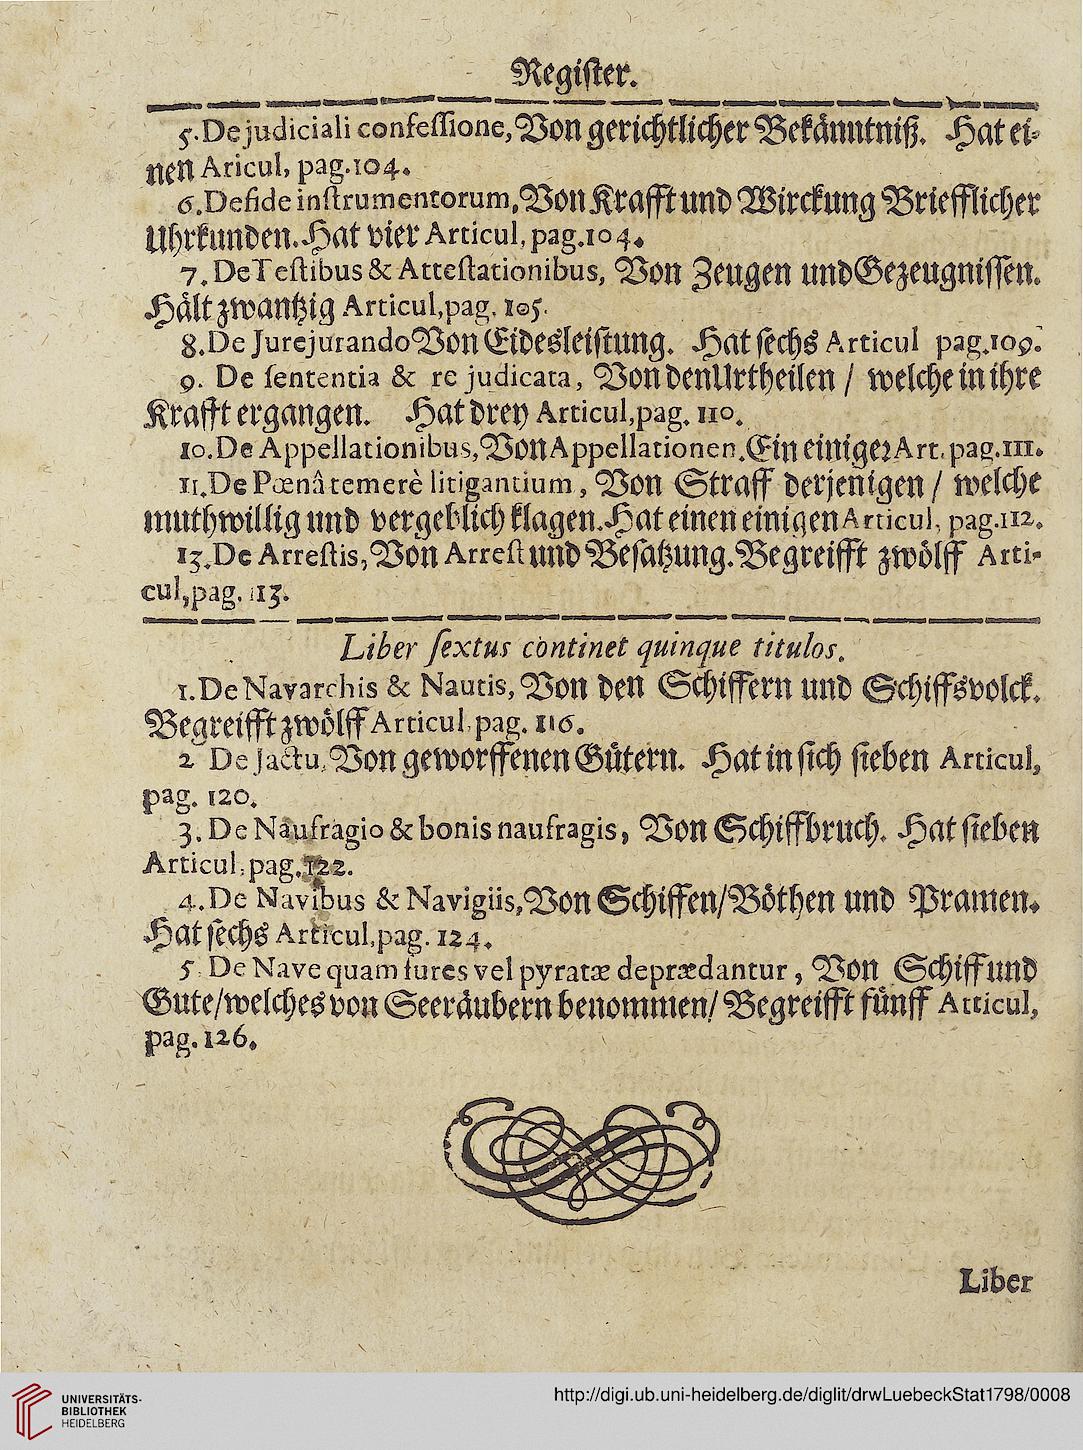 Regiſter.
5. De judiciali confeſſione, Von gerichtlicher Bekänntniß. Hat ei-
nen Aricul, pag. 104.
6. De fide inſtrumentorum, Von Krafft und Wirckung Briefflicher
Uhrkunden. Hat vier Articul, pag. 104.
7. De Teſtibus & Atteſtationibus, Von Zeugen und Gezeugniſſen.
Hält zwantzig Articul, pag. 105.
8. De Jurejurando Von Eidesleiſtung. Hat ſechs Articul pag. 109.
9. De ſententia & re judicata, Von den Urtheilen / welche in ihre
Krafft ergangen. Hat drey Articul, pag. 110.
10. De Appellationibus, Von Appellationen. Ein einiger Art. pag. 111.
11. De Pœnâ temerè litigantium, Von Straff derjenigen / welche
muthwillig und vergeblich klagen. Hat einen einigen Articul, pag. 112.
13. De Arreſtis, Von Arreſt und Beſatzung. Begreifft zwölff Arti-
cul, pag. 113.
Liber ſextus continet quinque titulos.
1. De Navarchis & Nautis, Von den Schiffern und Schiffsvolck.
Begreifft zwölff Articul, pag. 116.
2 De Jactu, Von geworffenen Gütern. Hat in ſich ſieben Articul,
pag. 120.
3. De Naufragio & bonis naufragis, Von Schiffbruch. Hat ſieben
Articul, pag. 122.
4. De Navibus & Navigiis, Von Schiffen / Böthen und Pramen.
Hat ſechs Articul, pag. 124.
5. De Nave quam fures vel pyratæ deprædantur, Von Schiff und
Gute / welches von Seeräubern benommen / Begreifft fünff Articul,
pag. 126.
Liber
UNIVERSITÄTS-
BIBLIOTHEK
HEIDELBERG
http://digi.ub.uni-heidelberg.de/diglit/drwLuebeckStat1798/0008